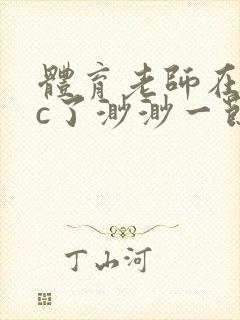 體育老師在
c了渺渺一
丁山河